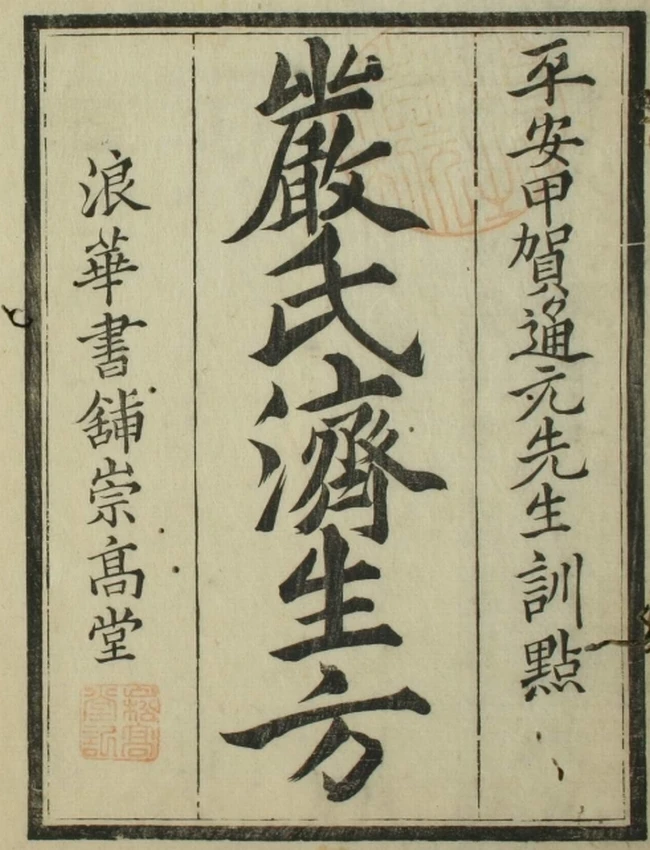 平安甲賀通元先生訓點
嚴氏濟生方
浪華書舖崇髙堂